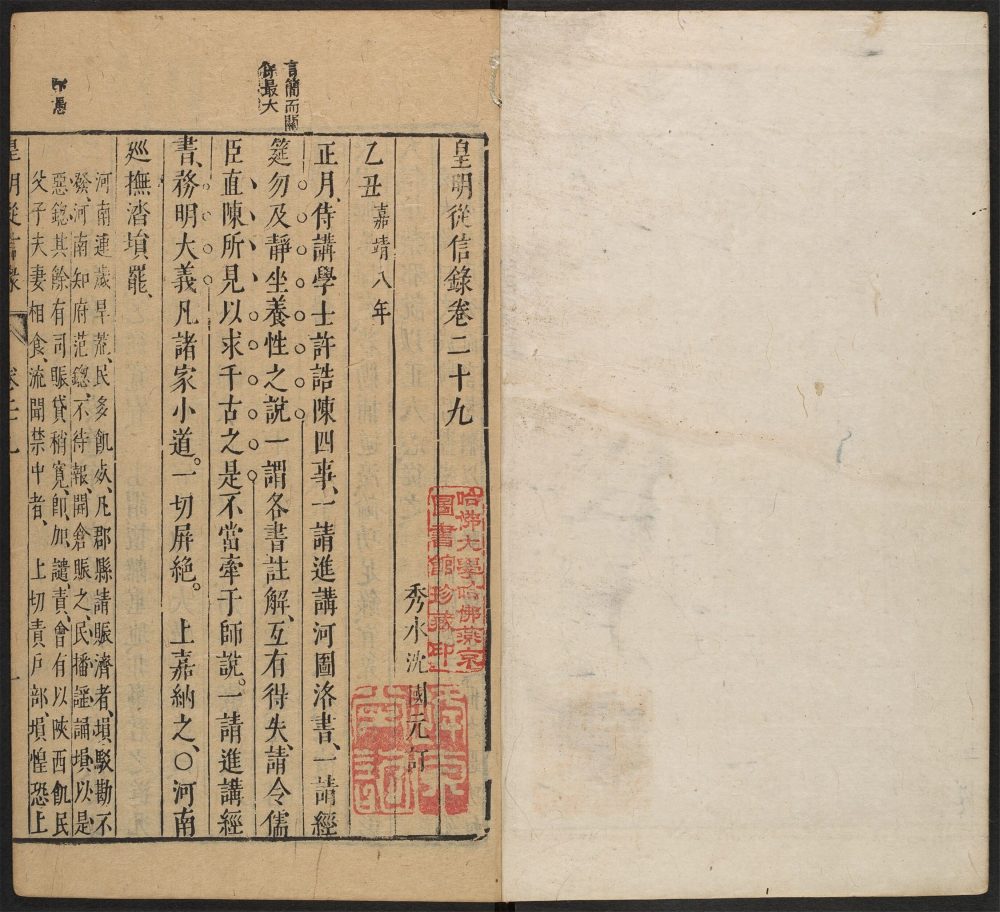 皇明從信錄卷二十九
秀水沈國元訂
乙丑嘉靖八年
正月、侍講學士許誥陳四事、一請進講河圖洛書、一請經
筵勿及靜坐養性之說一謂各書註解、互有得失、請令儒
臣直陳所見以求千古之是、不當牽于師說。一請進講經
書、務明大義凡諸家小道。一切屏絕。上嘉納之、○河南
廵撫潘塤罷、
河南連歲旱荒、民多飢、凡郡縣請賑濟者、塤駁勘不
發、河南知府范鏓不待報、開倉賑之、民播謡誦、塤以是
惡鏓、其餘有司賑貸稍寬、卽加譴責、會有以陝西飢民
父子夫妻相食、流聞禁中者、上切責戶部、塤惶恐上
皇明從信錄
一
言簡而關
係最大
哈佛大學哈佛燕京
圖書館珍藏印